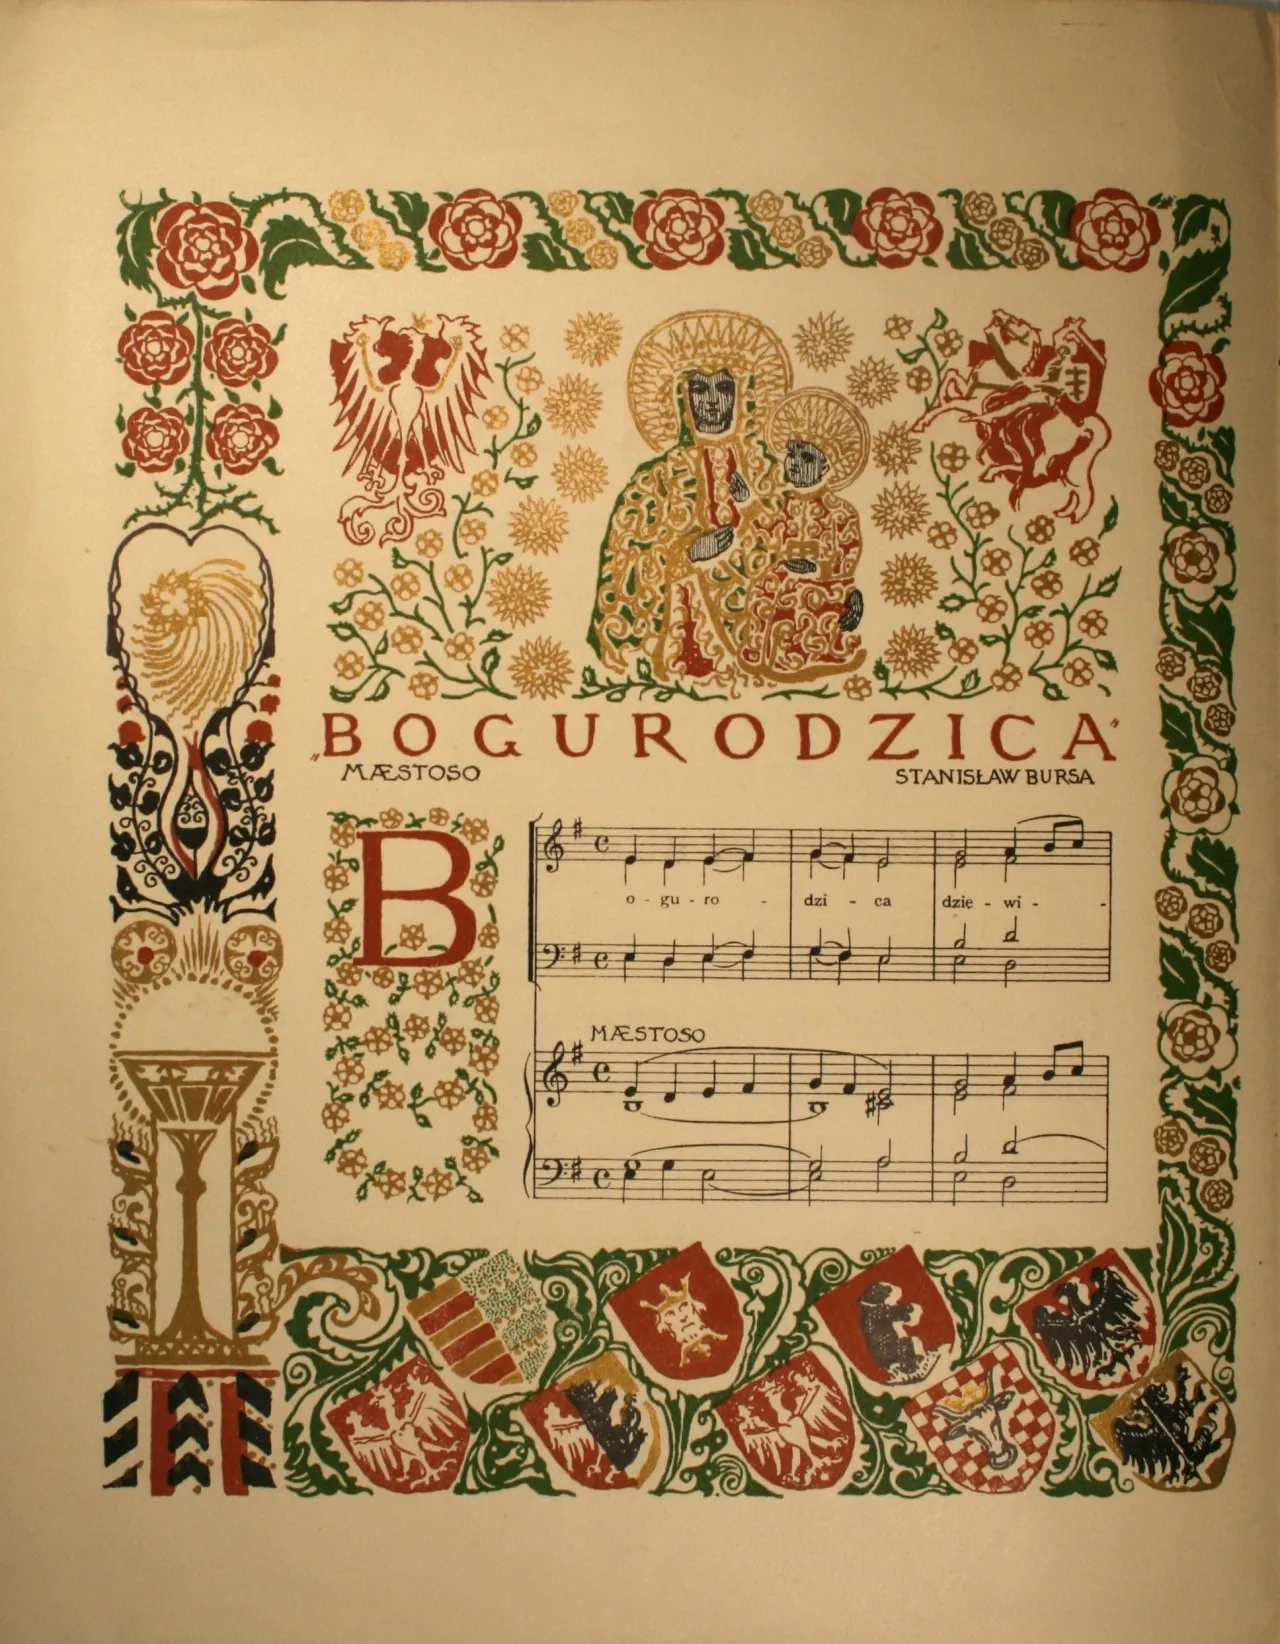 „BOGURODZICA”
MÆSTOSO
STANISŁAW BURSA
B
o - gu - ro - dzi - ca dzię - wi - -
MÆSTOSO